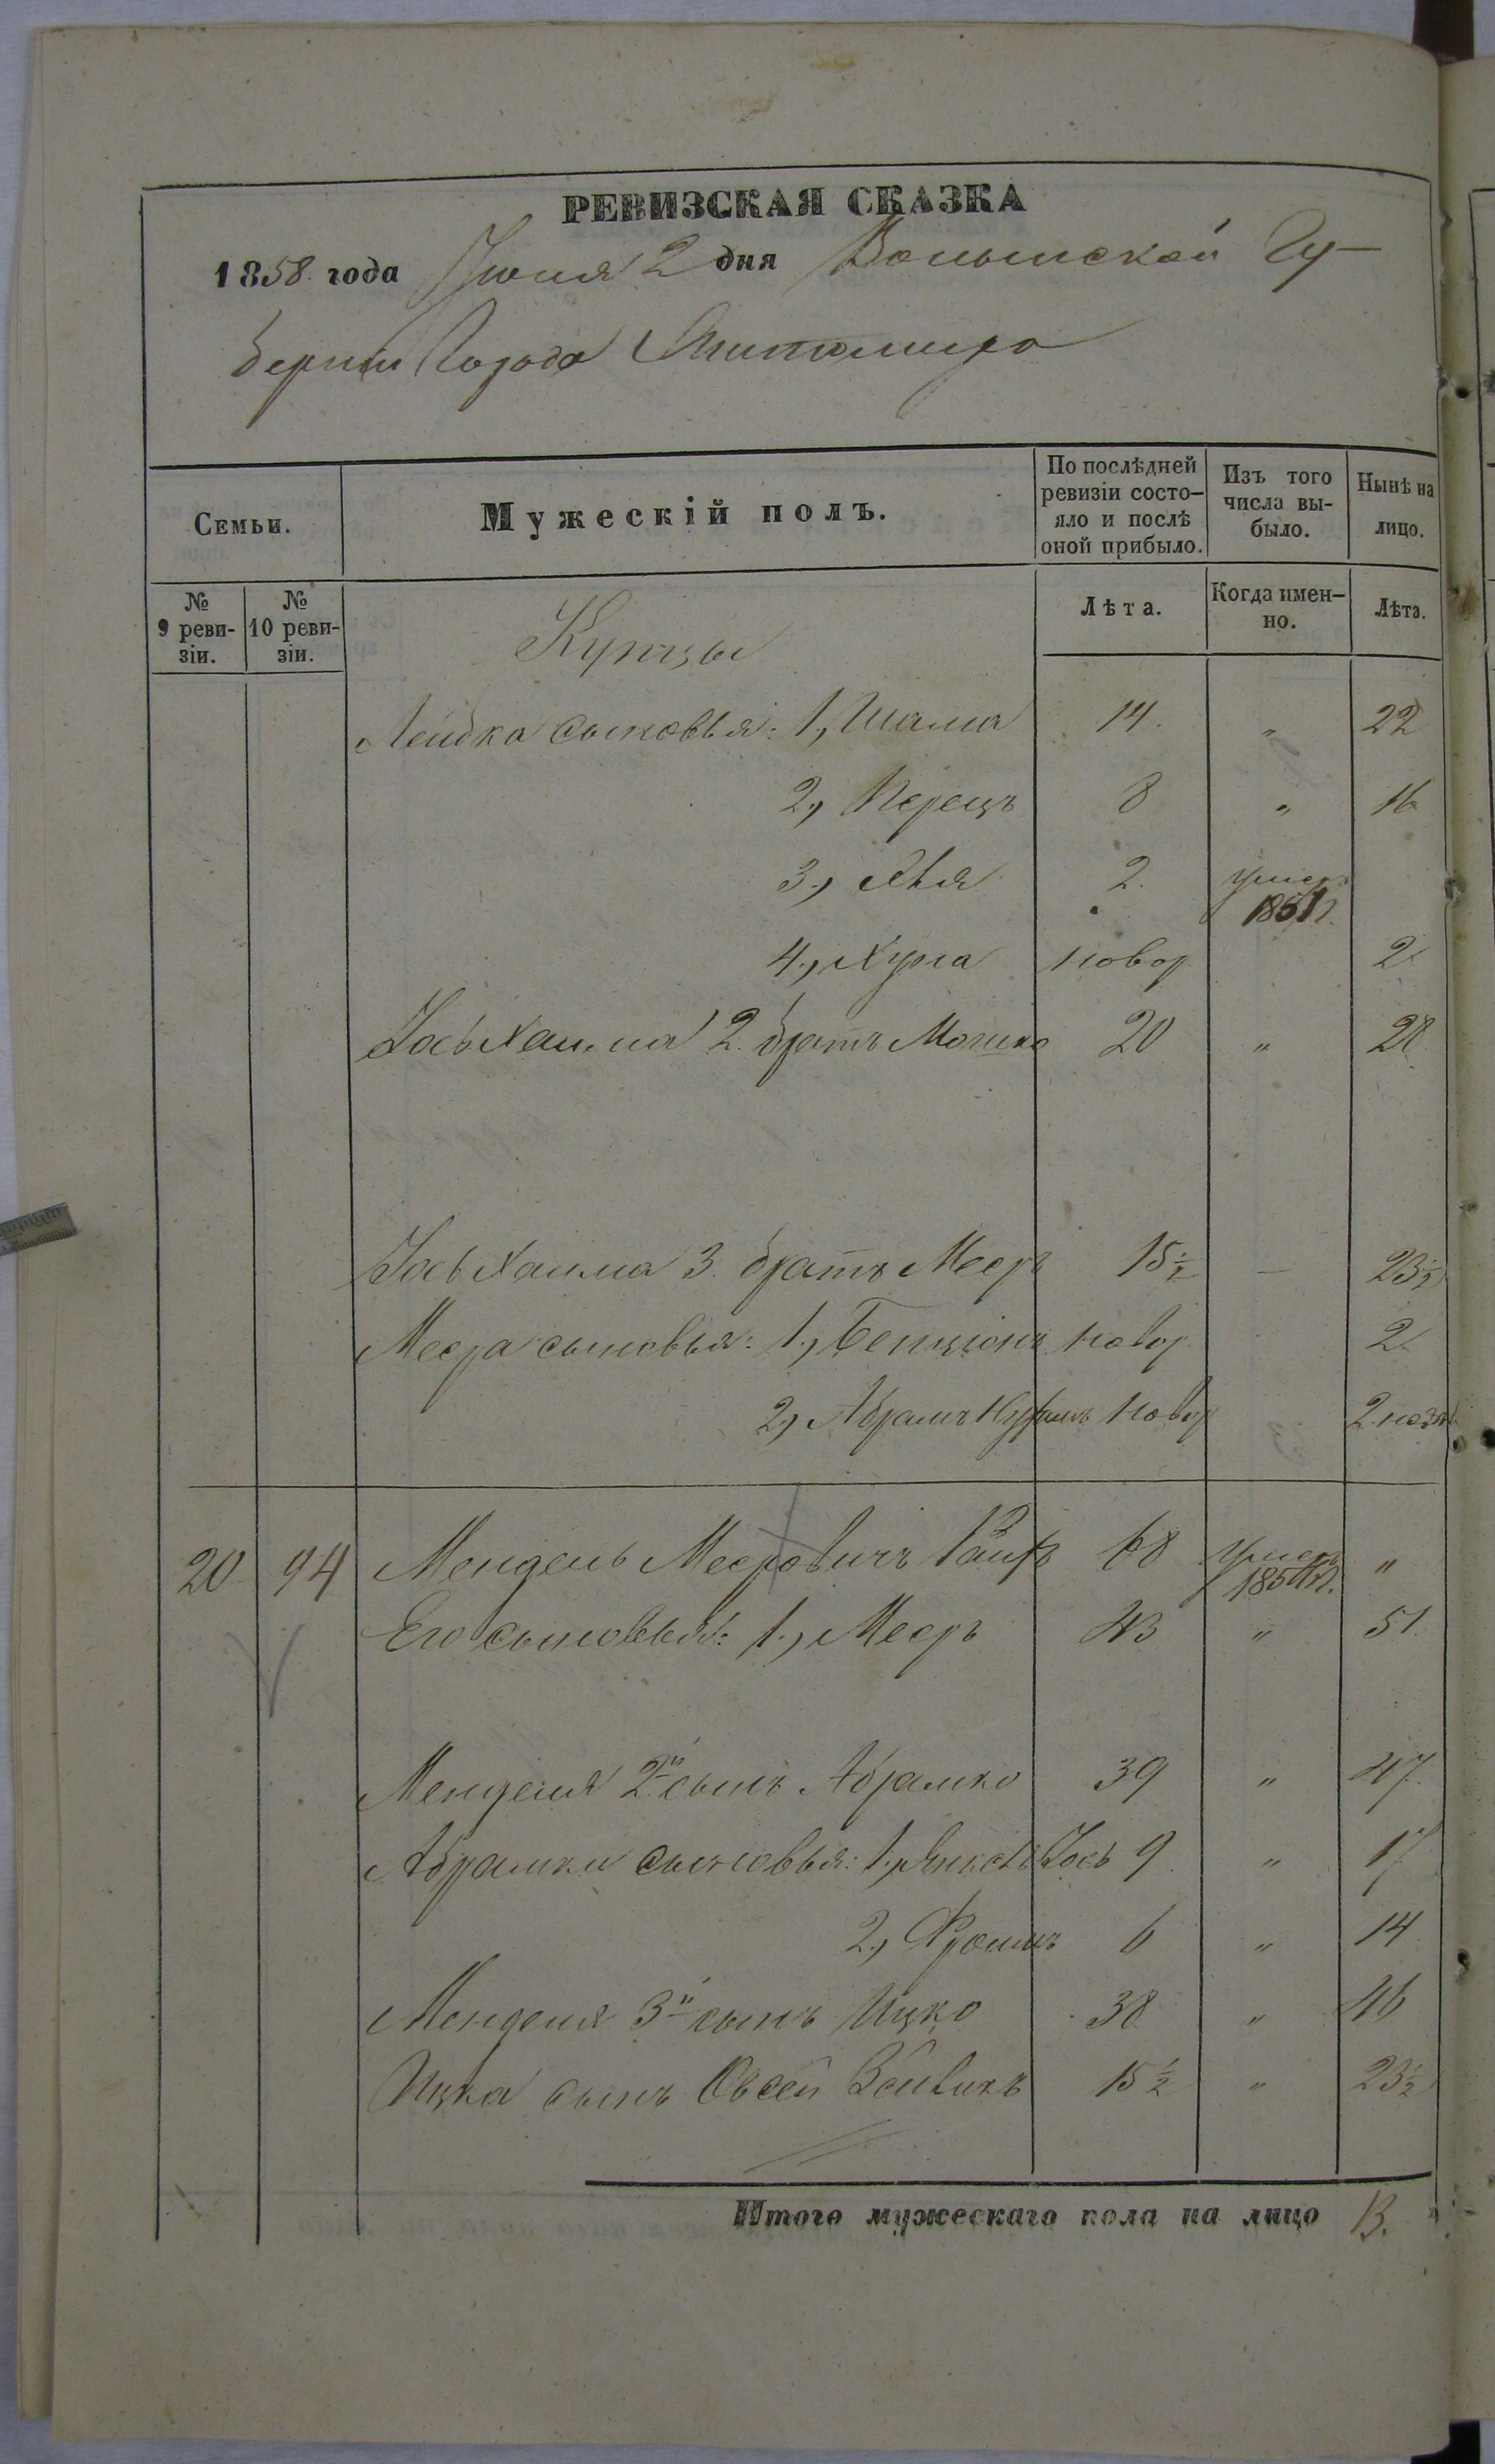 РЕВИЗСКАЯ СКАЗКА
1858 года Іюня 2 дня Волынской Гу-
берніи Города Житомира
Семьи.
Мужескій полъ.
По послѣдней ревизіи состо-яло и послѣ оной прибыло.
Изъ того числа вы-было.
Нынѣ на лицо.
№ 9 реви-зіи.
№ 10 реви-зіи.
Лѣта.
Когда имен-но.
Лѣта.
Купцы
Лейбка сыновья: 1, Шлема 14. " 22
2, Перецъ 8 " 16
3, 2. умеръ 1851г.
4, новор 2
Іось Хаима 2. братъ Мошко 20 " 28
Іось Хаима 3. братъ Мееръ 15½ — 23½
Меера сыновья: 1, Бенціонъ новор 2
2, Абрамъ новор 2 нед
20 94 Мендель Мееровичъ 68 умеръ "
Его сыновья: 1, Мееръ 43 " 51.
Менделя 2й сынъ Абрамко 39 " 47.
Абрамки сыновья: 1, Янкель Іось 9 " 17
2, Фроимъ 6 " 14
Менделя 3й сынъ Ицко 38 " 46
Ицка сынъ Овсей 15½ " 23½
Итого мужескаго пола на лицо 13.